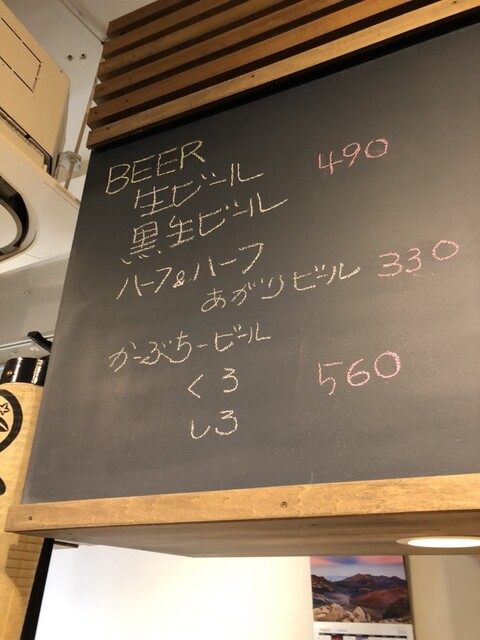 BEER
生ビール 490
黒生ビール
ハーフ&ハーフ
あがりビール 330
かーぶちービール
くろ 560
しろ